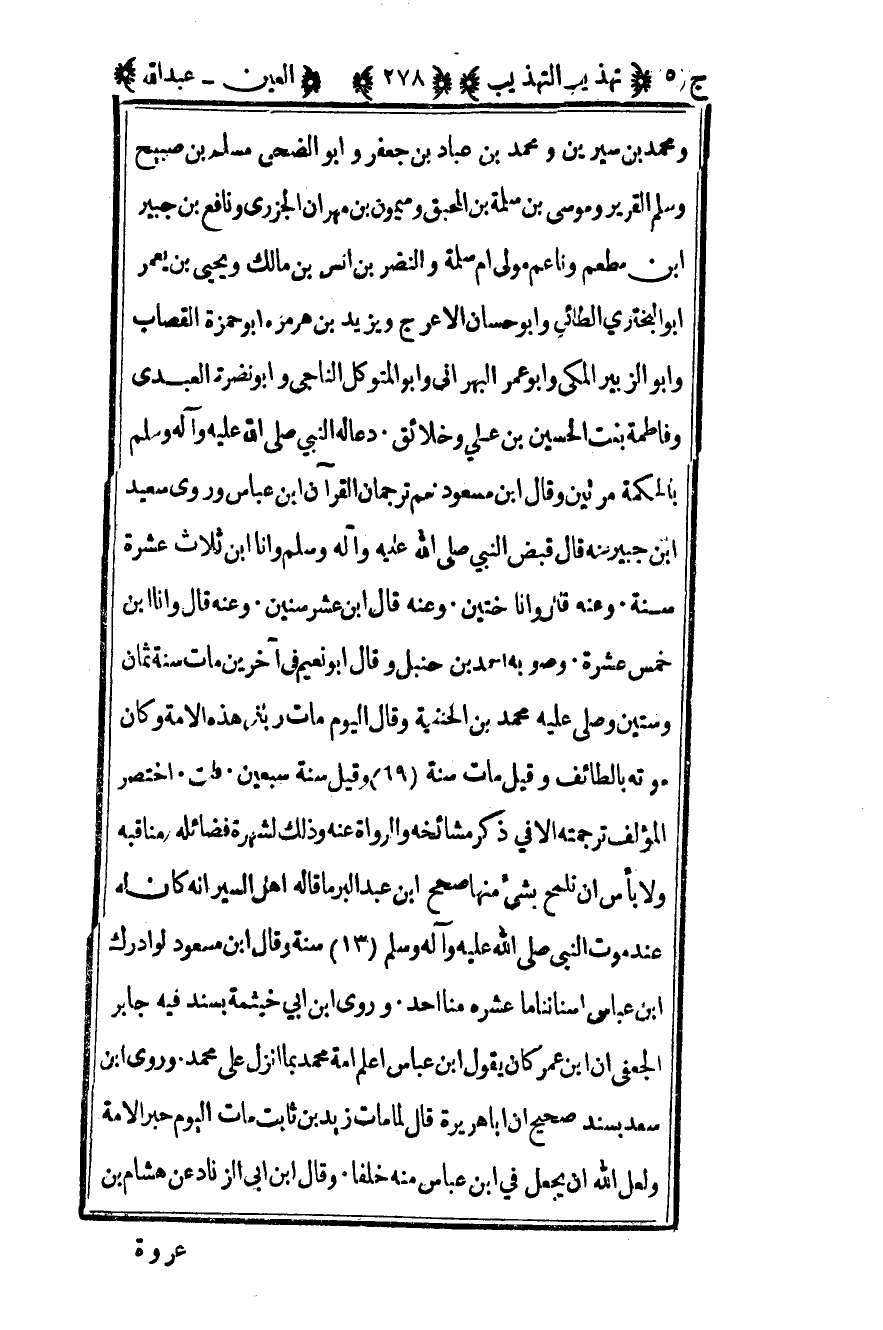 ج ٥ تهذيب التهذيب ٢٧٨ العين - عبدالله
و محمد بن سيرين و محمد بن عباد بن جعفر و ابو الضحى مسلم بن صبيح
و سلم القرير و موسى بن سلمة بن المحبق و ميمون بن مهران الجزرى و نافع بن جبير
ابن مطعم و ناعم مولى ام سلمة و النضر بن انس بن مالك و يحيى بن يعمر
ابو البختري الطائي و ابو حسان الاعرج و يزيد بن هرمزه ابو حمزة القصاب
و ابو الزبير المكى و ابو عمر البهرانى و ابو المتوكل الناجى و ابو نضرة العبدى
و فاطمة بنت الحسين بن علي و خلائق . دعاله النبي صلى الله عليه وآله وسلم
بالحكمة مرتين وقال ابن مسعود نعم ترجمان القرآن ابن عباس وروى سعيد
ابن جبير عنه قال قبض النبي صلى الله عليه وآله وسلم وانا ابن ثلاث عشرة
سنة . وعنه قال وانا ختين . وعنه قال ابن عشر سنين . وعنه قال وانا ابن
خمس عشرة . وصوبه احمد بن حنبل وقال ابو نعيم فى آخرين مات سنة ثمان
وستين وصلى عليه محمد بن الحنفية وقال اليوم مات ربانى هذه الامة وكان
موته بالطائف وقيل مات سنة (٦٩) وقيل سنة سبعين . قلت . اختصر
المؤلف ترجمته الا في ذكر مشائخه والرواة عنه وذلك لشهرة فضائله ومناقبه
ولا بأس ان نلمح بشئ منها صحح ابن عبد البر ما قاله اهل السير انه كان له
عند موت النبي صلى الله عليه وآله وسلم (١٣) سنة وقال ابن مسعود لو ادرك
ابن عباس اسناننا ما عشره منا احد . وروى ابن ابي خيثمة بسند فيه جابر
الجعفى ان ابن عمر كان يقول ابن عباس اعلم امة محمد بما انزل على محمد . وروى ابن
سعد بسند صحيح ان ابا هريرة قال لما مات زيد بن ثابت مات اليوم حبر الامة
ولعل الله ان يجعل في ابن عباس منه خلفا . وقال ابن ابى الزناد عن هشام بن
عروة